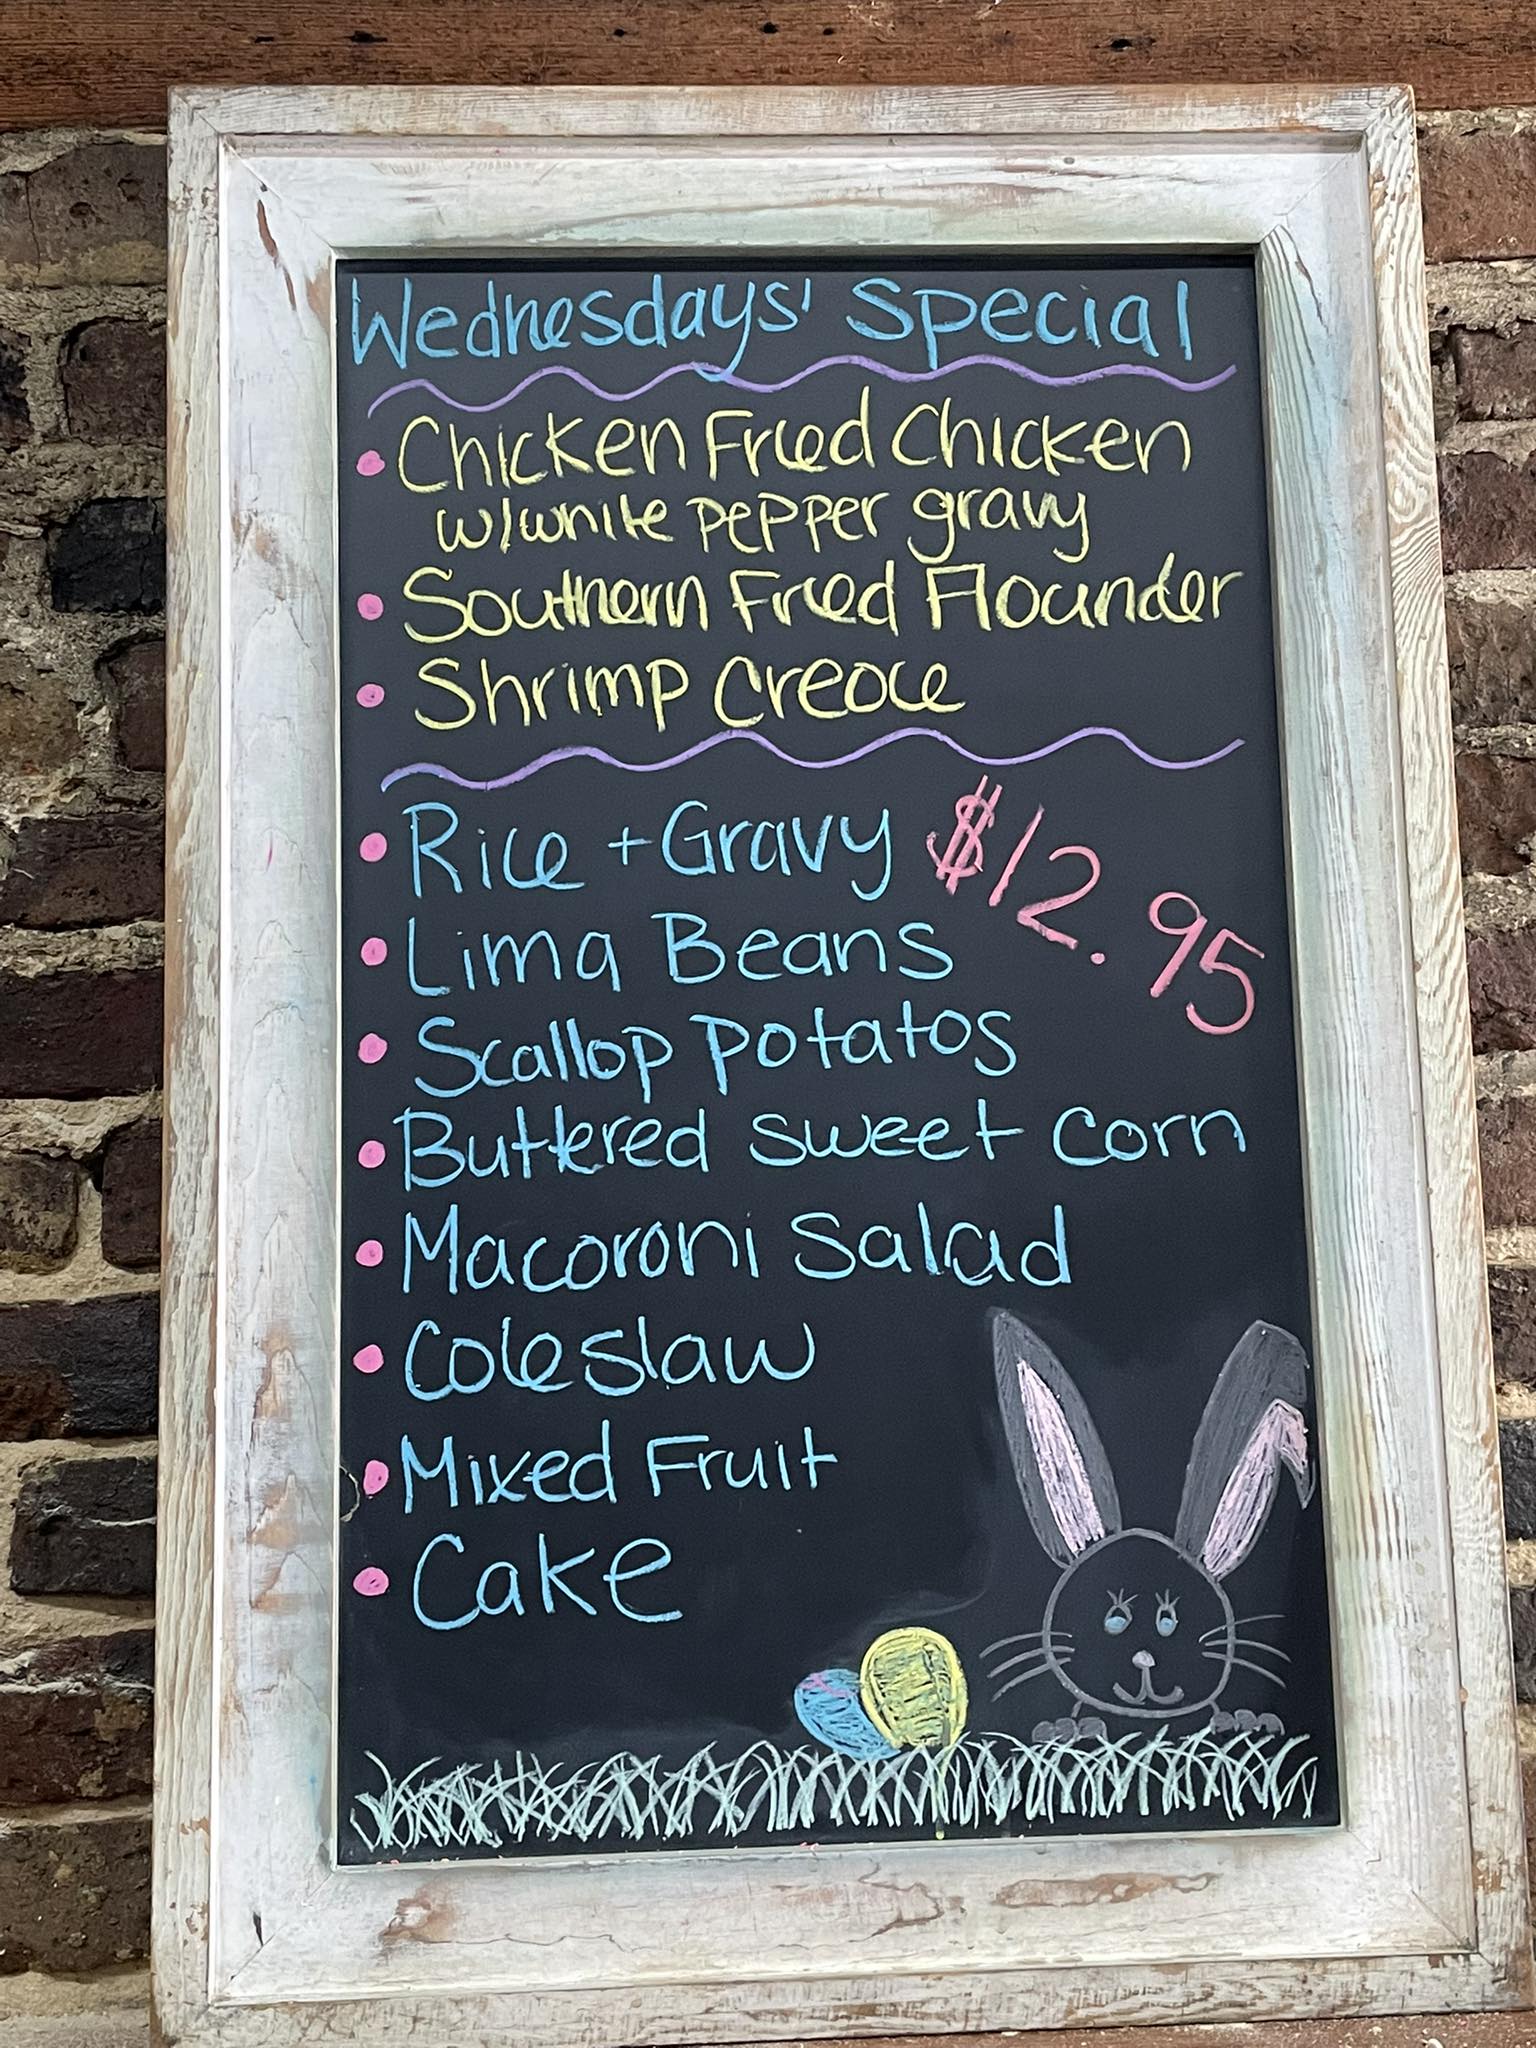 Wednesdays' Special
• Chicken Fried Chicken
w/white pepper gravy
• Southern Fried Flounder
• Shrimp Creole
• Rice + Gravy $12.95
• Lima Beans
• Scallop Potatos
• Buttered Sweet Corn
• Macoroni Salad
• Coleslaw
• Mixed Fruit
• Cake